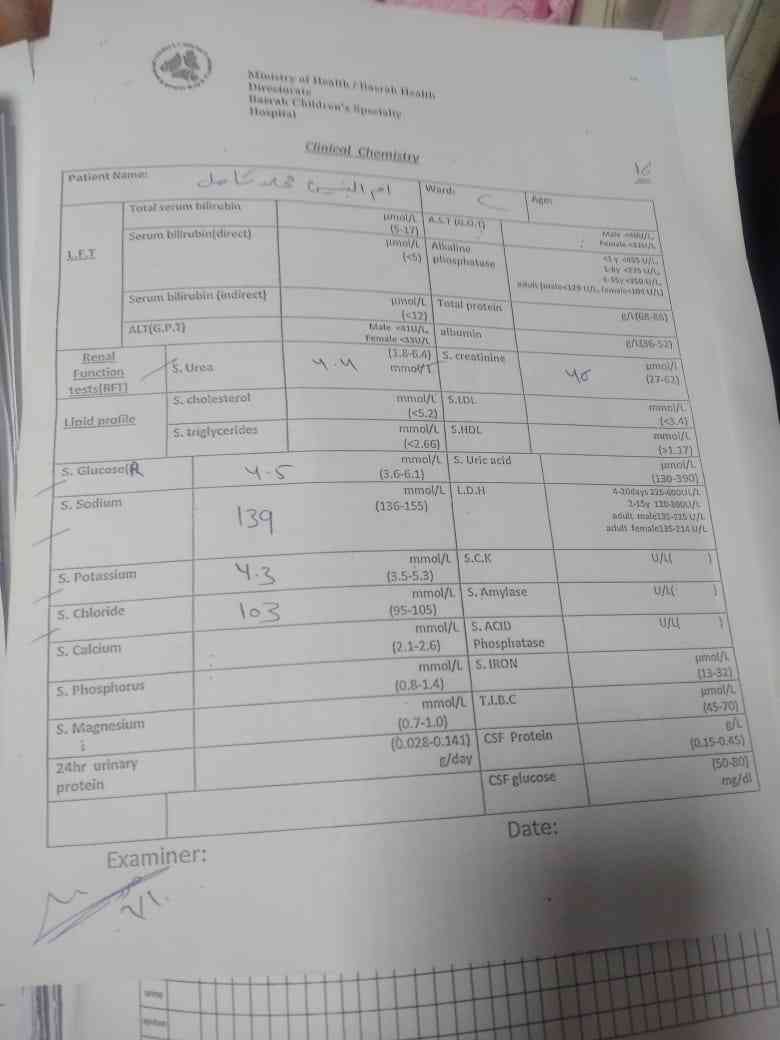 Ministry of Health / Basrah Health
Directorate
Basrah Children's Specialty
Hospital
Clinical Chemistry
16
Patient Name: ام البنين محمد كامل Ward: C Age:
L.F.T
Total serum bilirubin µmol/L (5-17)
A.S.T (G.O.T) Male <40U/L, Female <32U/L
Serum bilirubin(direct) µmol/L (<5)
Alkaline phosphatase
adult (male<129 U/L, female<104 U/L)
Serum bilirubin (indirect) µmol/L (<12)
Total protein g/l(68-86)
ALT(G.P.T) Male <41U/L, Female <33U/L
albumin g/l(36-52)
Renal Function tests(RFT)
S. Urea 4.4 (1.8-6.4) mmol/L
S. creatinine 40 µmol/L (27-62)
Lipid profile
S. cholesterol mmol/L (<5.2)
S.LDL mmol/L (<3.4)
S. triglycerides mmol/L (<2.66)
S.HDL mmol/L (>1.17)
S. Glucose(R 4.5 mmol/L (3.6-6.1)
S. Uric acid µmol/L (130-390)
S. Sodium 139 mmol/L (136-155)
L.D.H 4-20days 225-600U/L
2-15y 120-300U/L
adult male135-225 U/L
adult female135-214 U/L
S. Potassium 4.3 mmol/L (3.5-5.3)
S.C.K U/L( )
S. Chloride 103 mmol/L (95-105)
S. Amylase U/L( )
S. Calcium mmol/L (2.1-2.6)
S. ACID Phosphatase U/L( )
S. Phosphorus mmol/L (0.8-1.4)
S. IRON µmol/L (13-32)
S. Magnesium mmol/L (0.7-1.0)
T.I.B.C µmol/L (45-70)
24hr urinary protein (0.028-0.141) g/day
CSF Protein g/L (0.15-0.45)
CSF glucose (50-80) mg/dl
Examiner: Date: